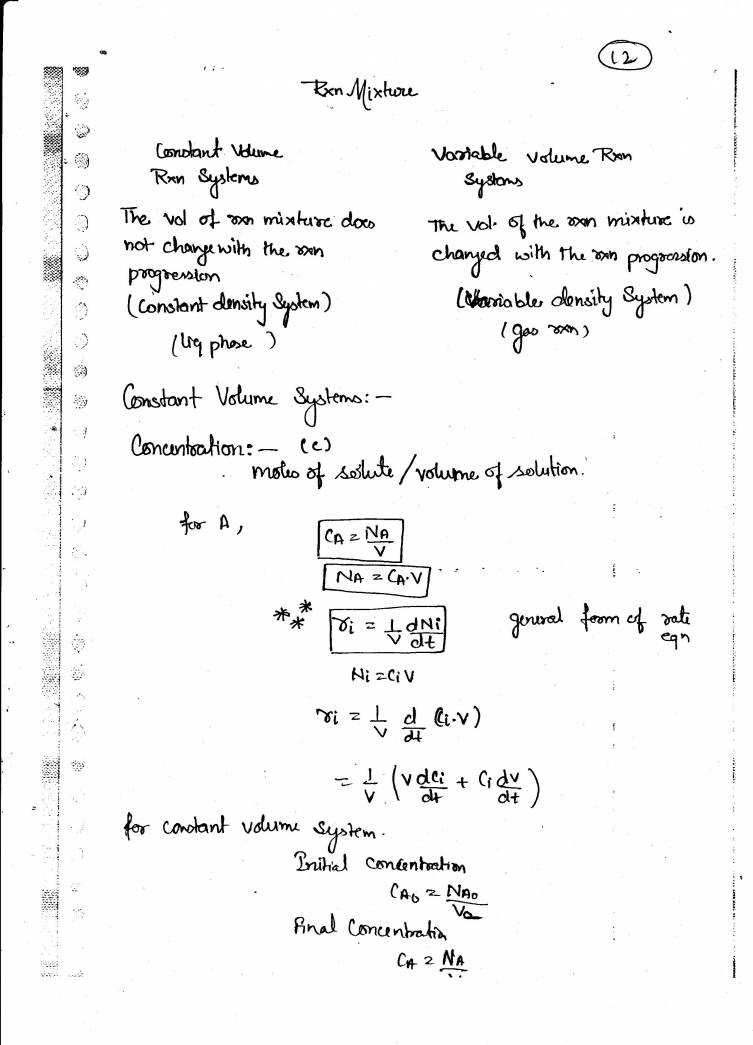 12
Rxn Mixture
Constant Volume
Rxn Systems
The vol of rxn mixture does
not change with the rxn
progression
(Constant density System)
(liq phase)
Variable volume Rxn
Systems
The vol. of the rxn mixture is
changed with the rxn progression.
(Variable density System)
(gas rxn)
Constant Volume Systems:-
Concentration:- (c)
moles of solute/volume of solution.
for A,
CA = NA/V
NA = CA.V
*** ri = 1/V dNi/dt general form of rate eqn
Ni = CiV
ri = 1/V d/dt (Ci.V)
= 1/V (V dCi/dt + Ci dV/dt)
for constant volume system.
Initial concentration
CA0 = NA0/V0
Final Concentration
CA = NA